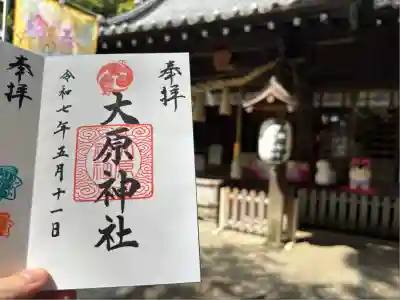 奉拝
大原神社
令和七年五月十一日
奉拝